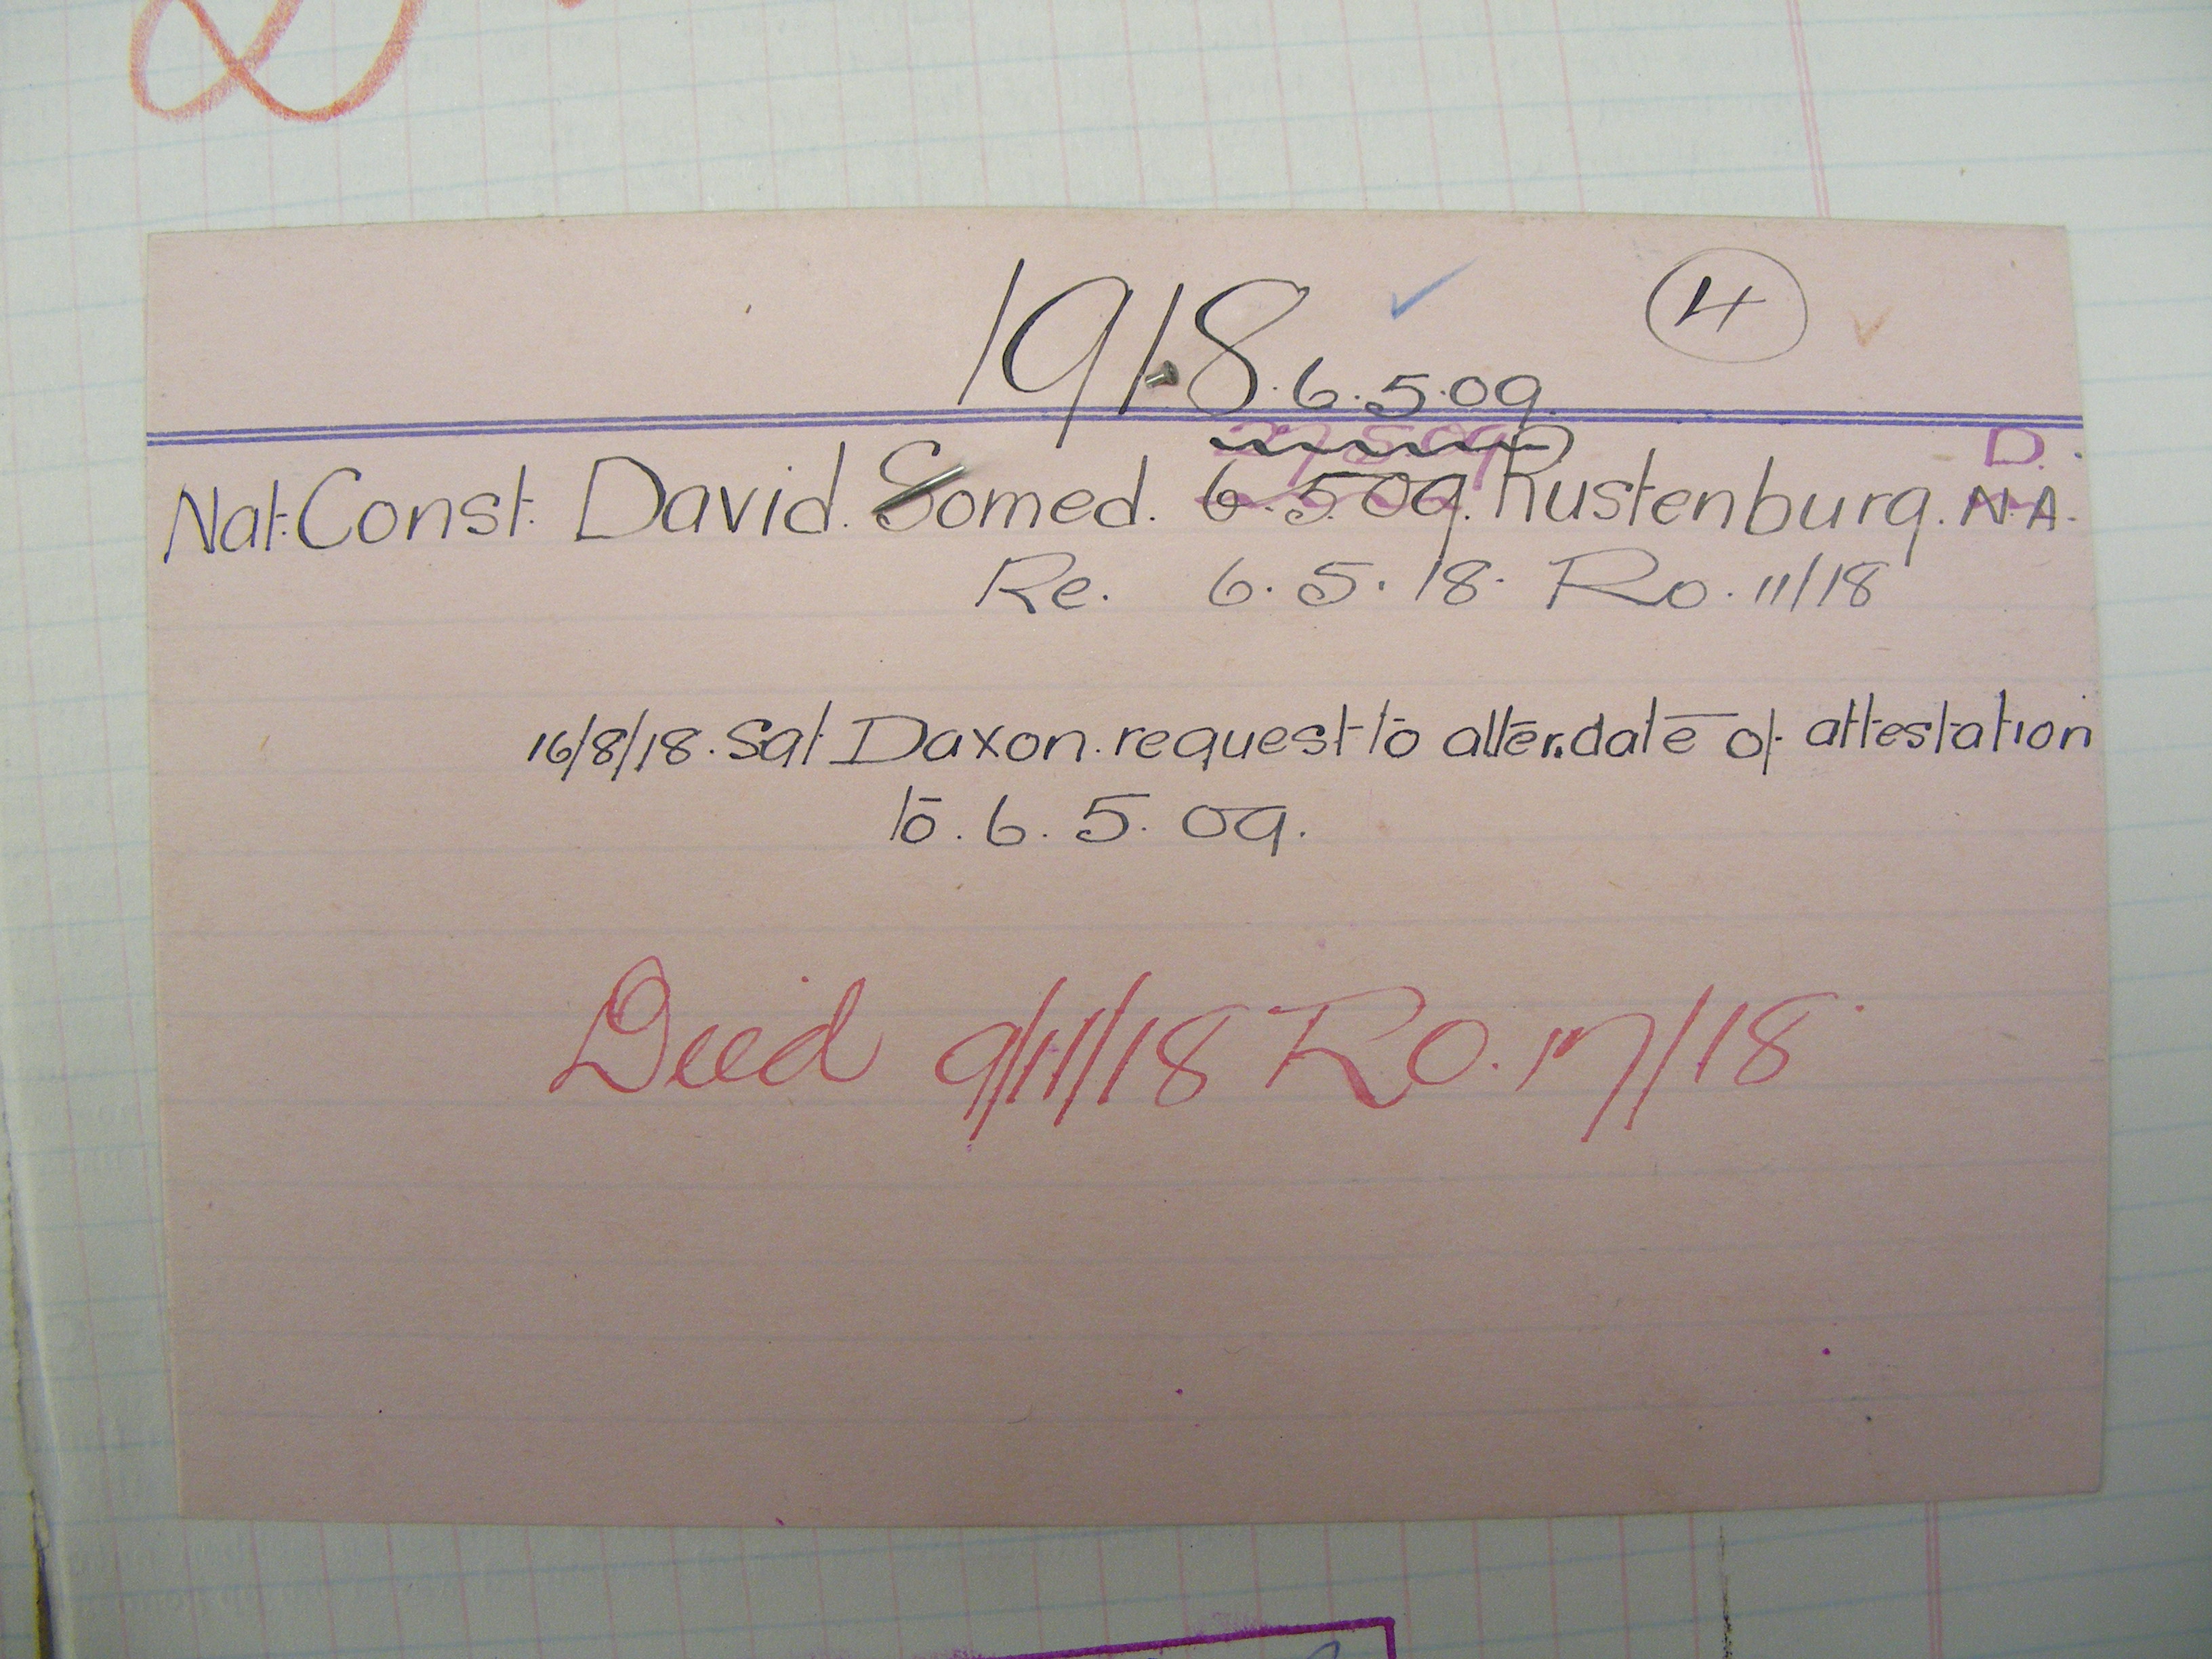 1918 ④
6.5.09.
D.
Nat. Const. David. Somed. 6.5.09. Rustenburg. N.A.
Re. 6.5.18. Ro. 11/18
16/8/18. Sgt Daxon. request to alter. date of attestation
to. 6. 5. 09.
Deid 9/11/18 RO. 17/18